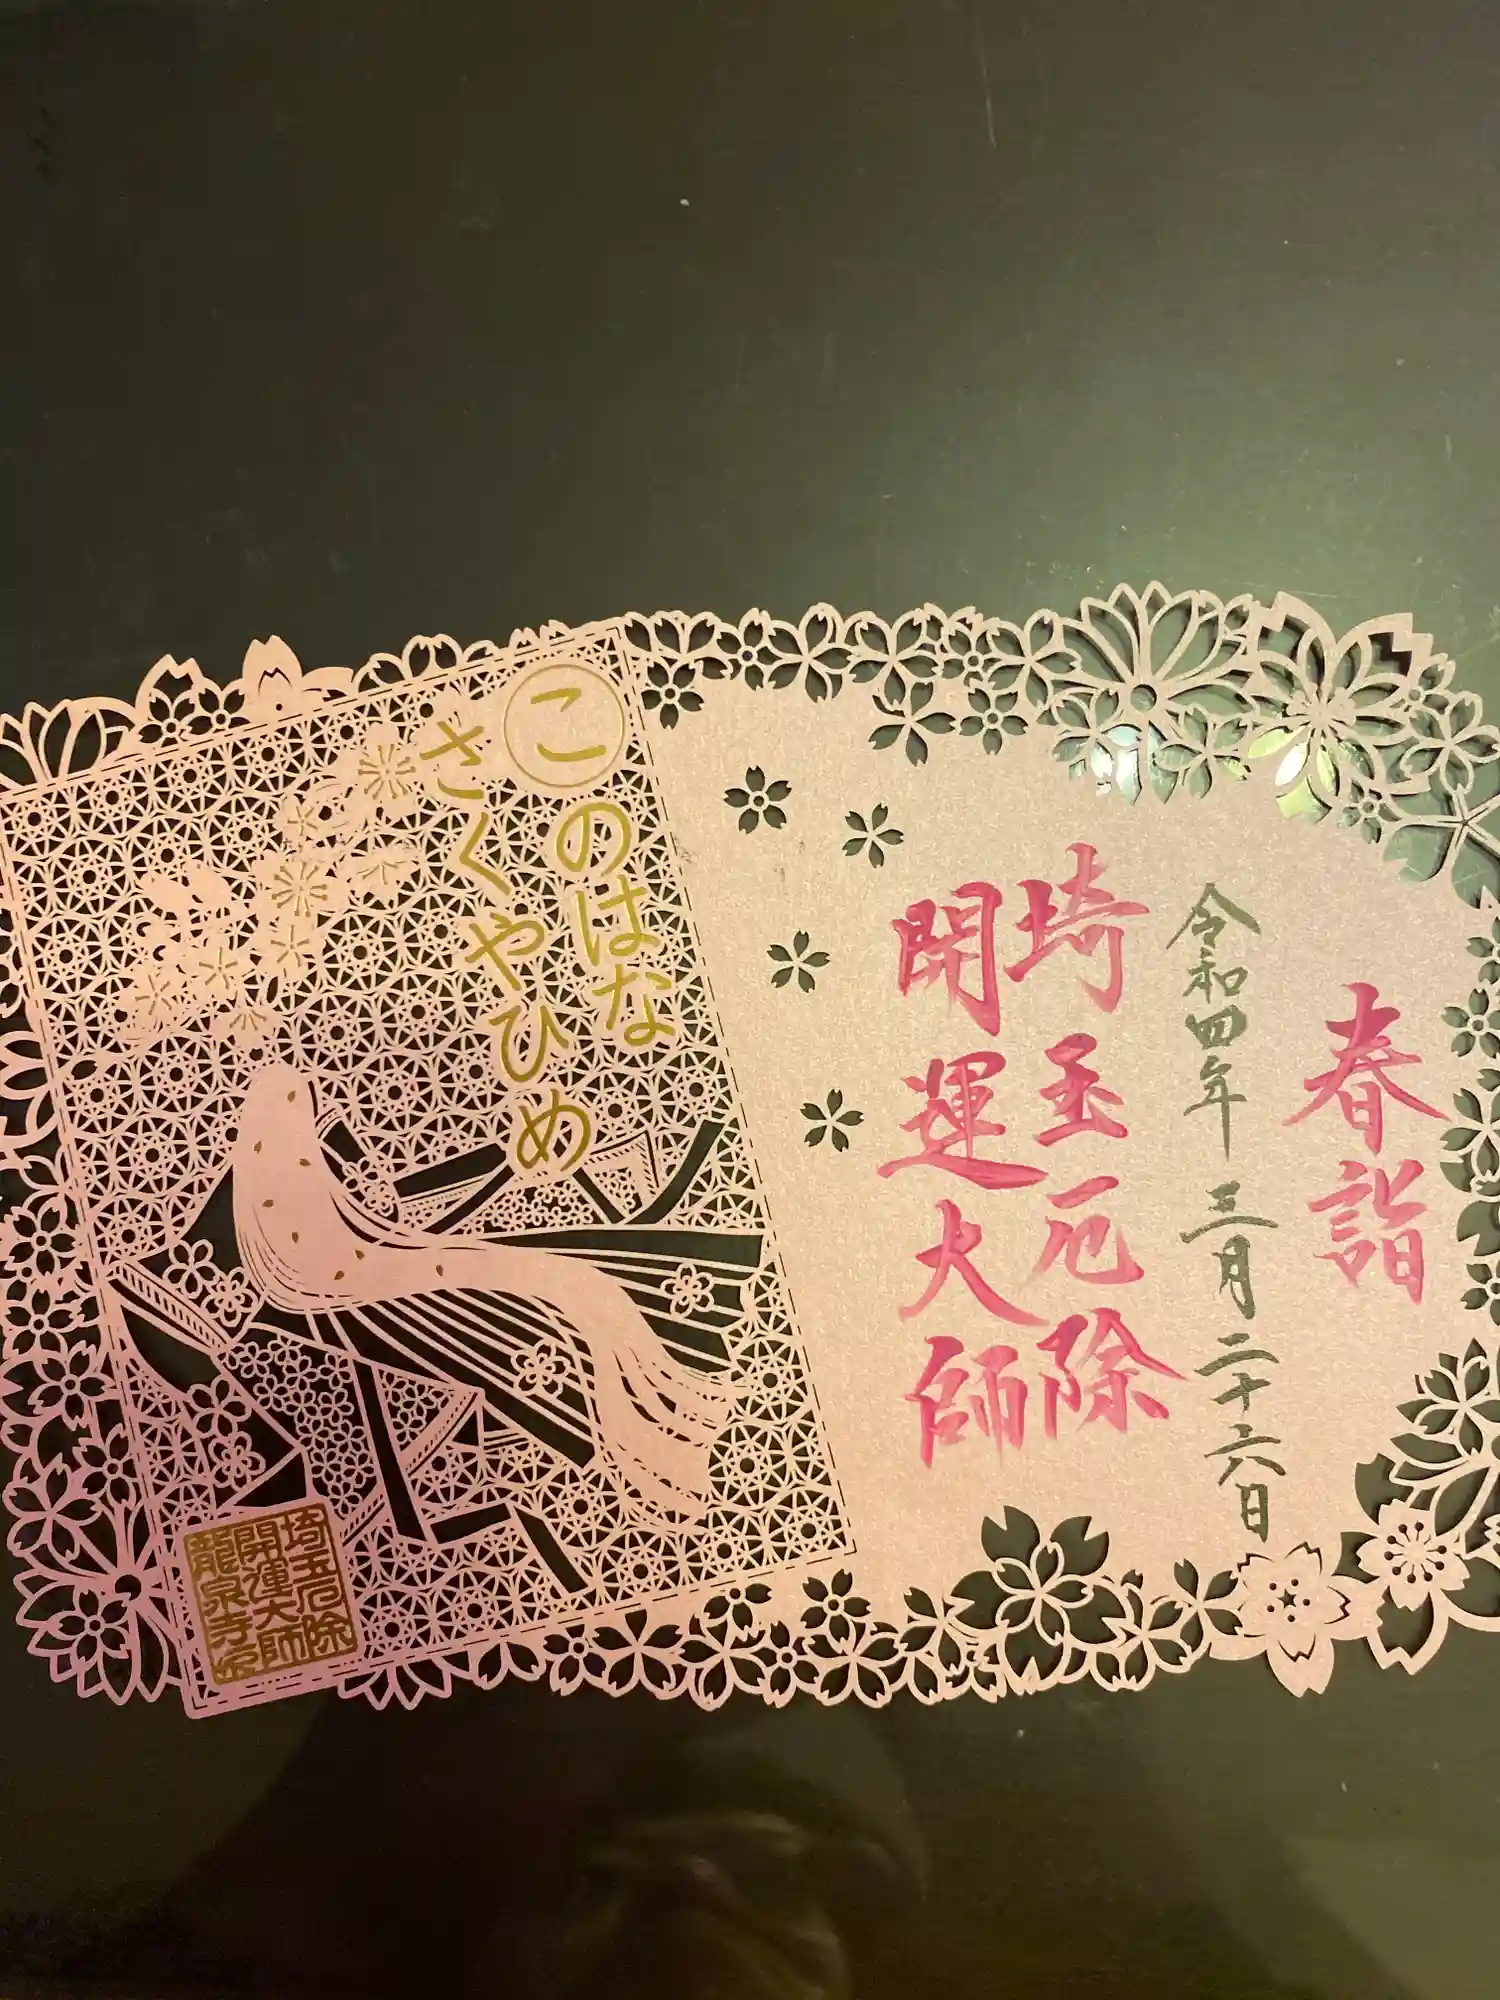 春詣
令和四年 三月二十六日
埼玉厄除
開運大師
このはな
さくやひめ
埼玉厄除
開運大師
龍泉寺